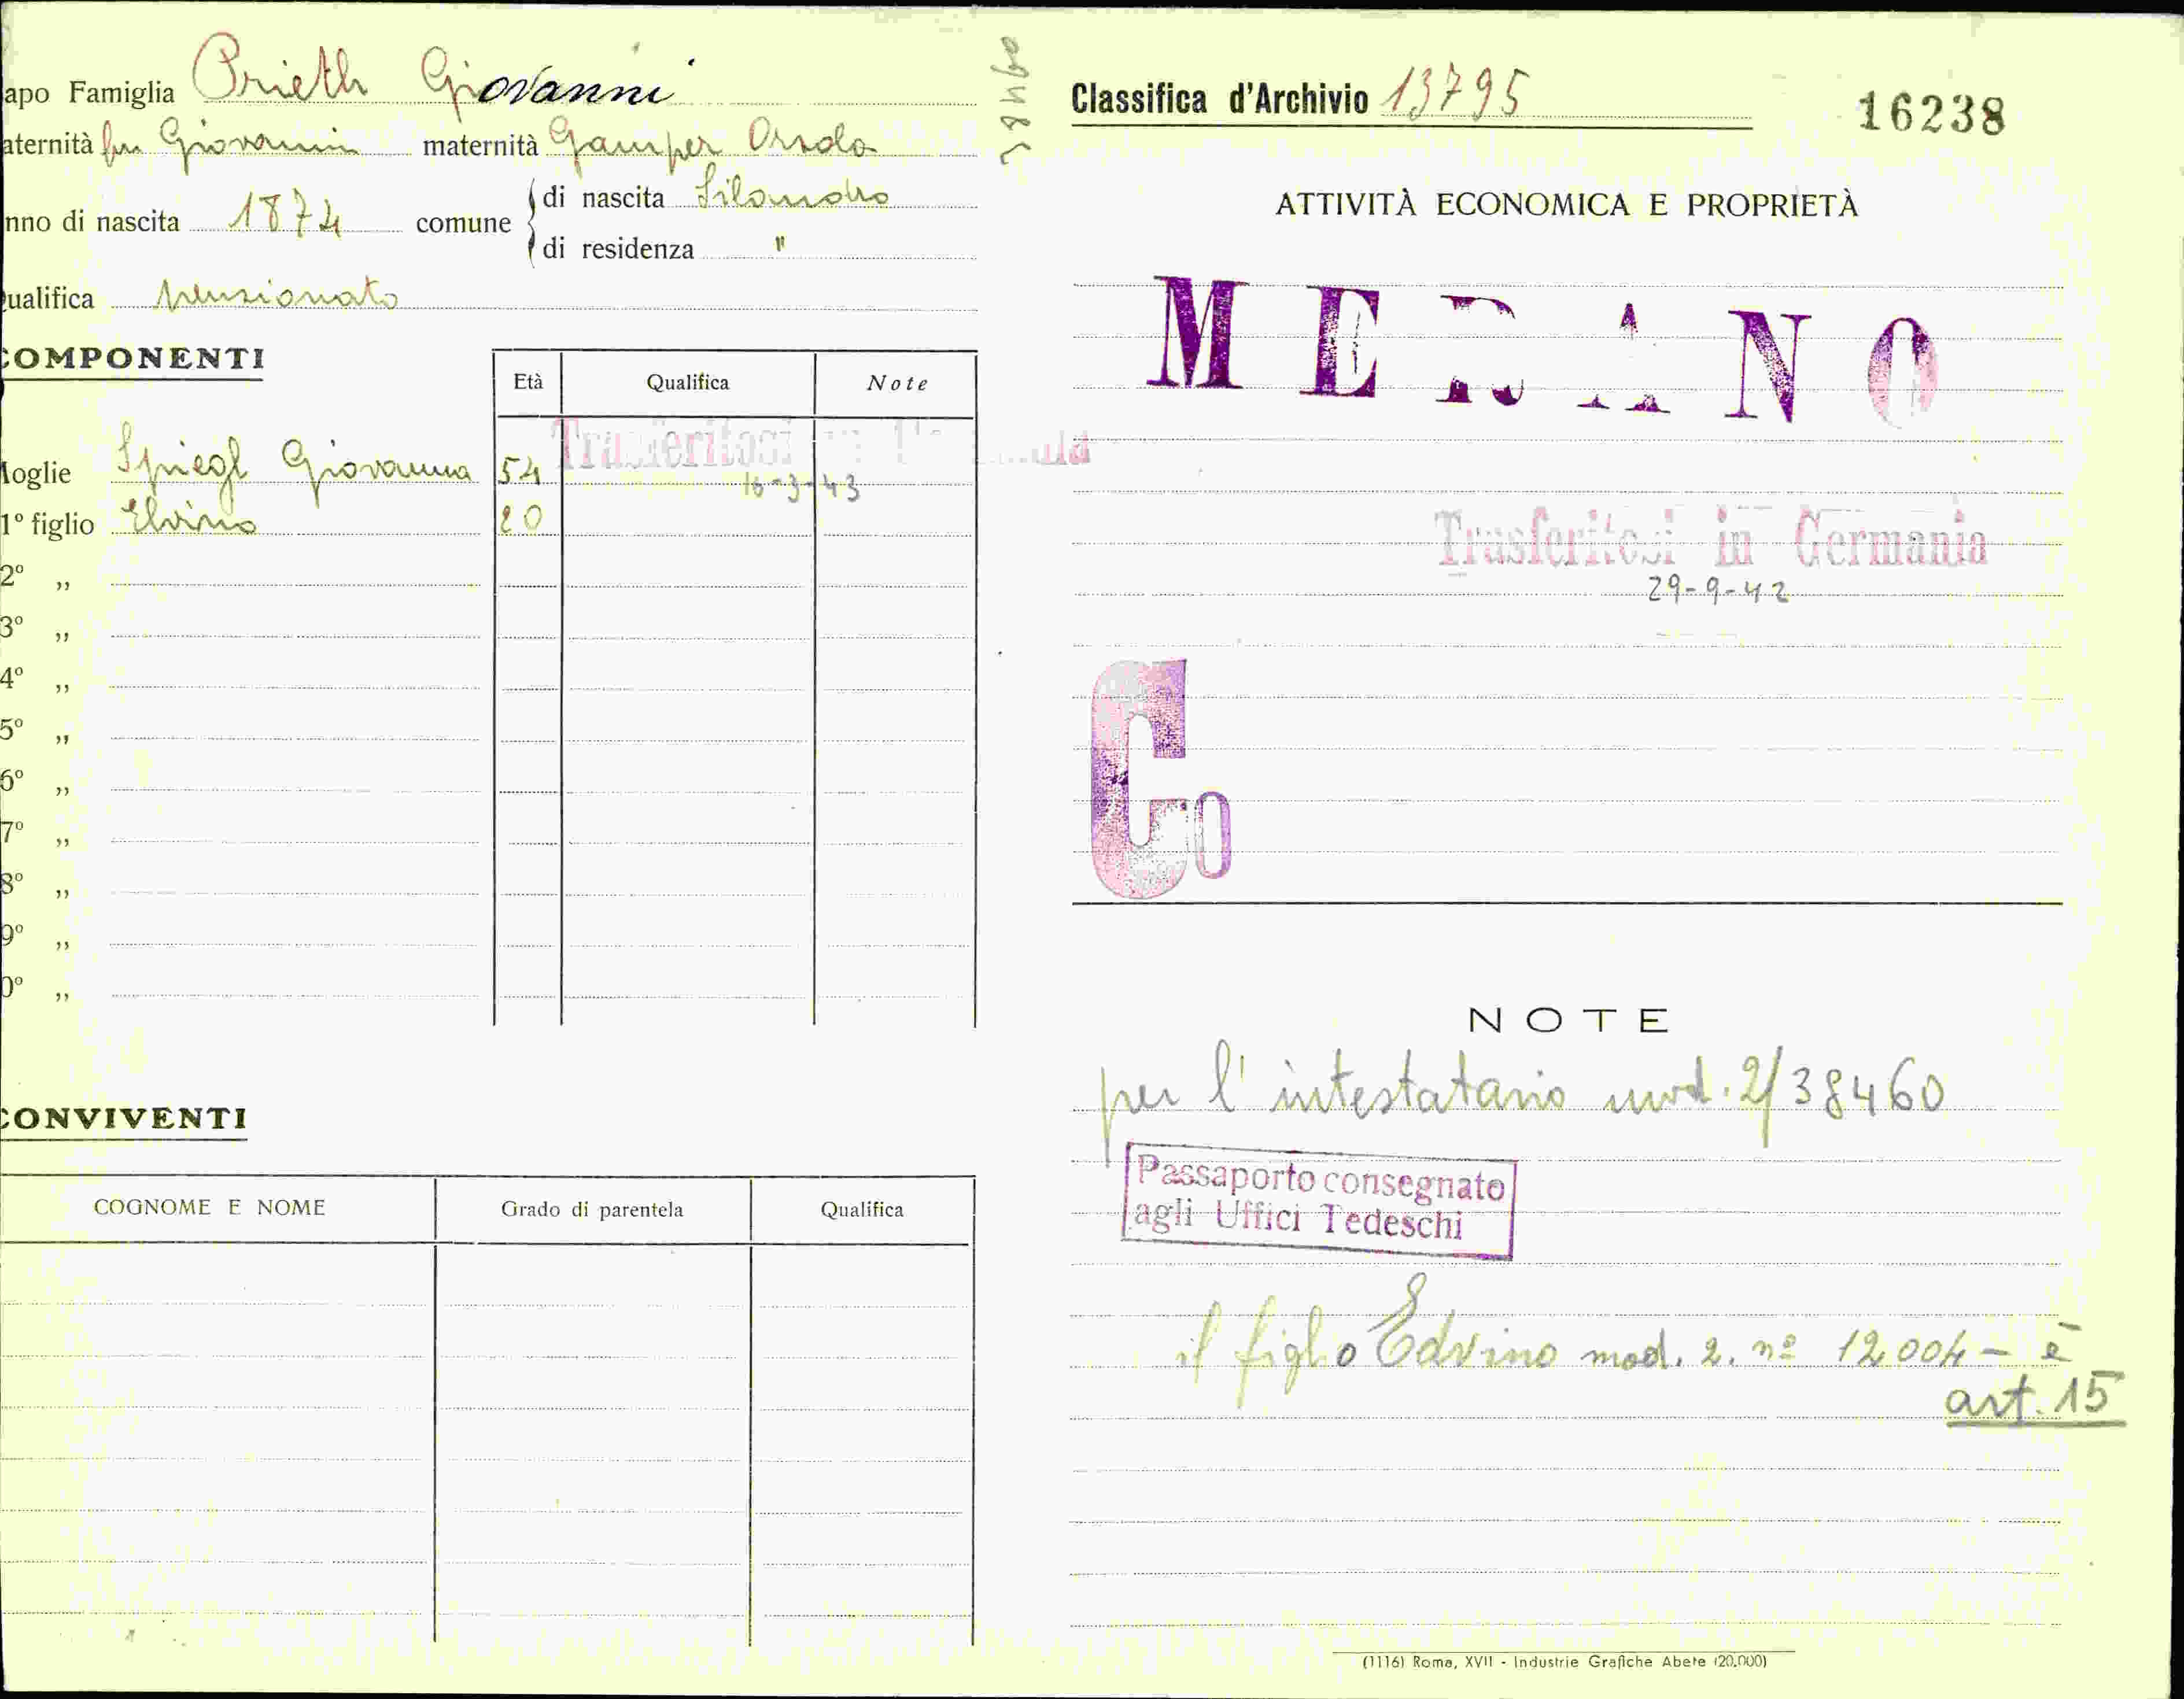 apo Famiglia Prieth Giovanni
aternità fu Giovanni maternità Gamper Orsola
nno di nascita 1874 comune di nascita Silandro
di residenza "
ualifica pensionato
COMPONENTI
Età Qualifica Note
Trasferitosi
Moglie Spiegl Giovanna 54
16-3-43
1º figlio Elvino 20
2º „
3º „
4º „
5º „
6º „
7º „
8º „
9º „
0º „
CONVIVENTI
COGNOME E NOME Grado di parentela Qualifica
Classifica d'Archivio 13795
16238
ATTIVITÀ ECONOMICA E PROPRIETÀ
MERANO
Trasferitosi in Germania
29-9-42
Co
NOTE
per l'intestatario mod. 2/38460
Passaporto consegnato
agli Uffici Tedeschi
il figlio Edvino mod. 2. nº 12004 - è
art. 15
(1116) Roma, XVII - Industrie Grafiche Abete (20.000)